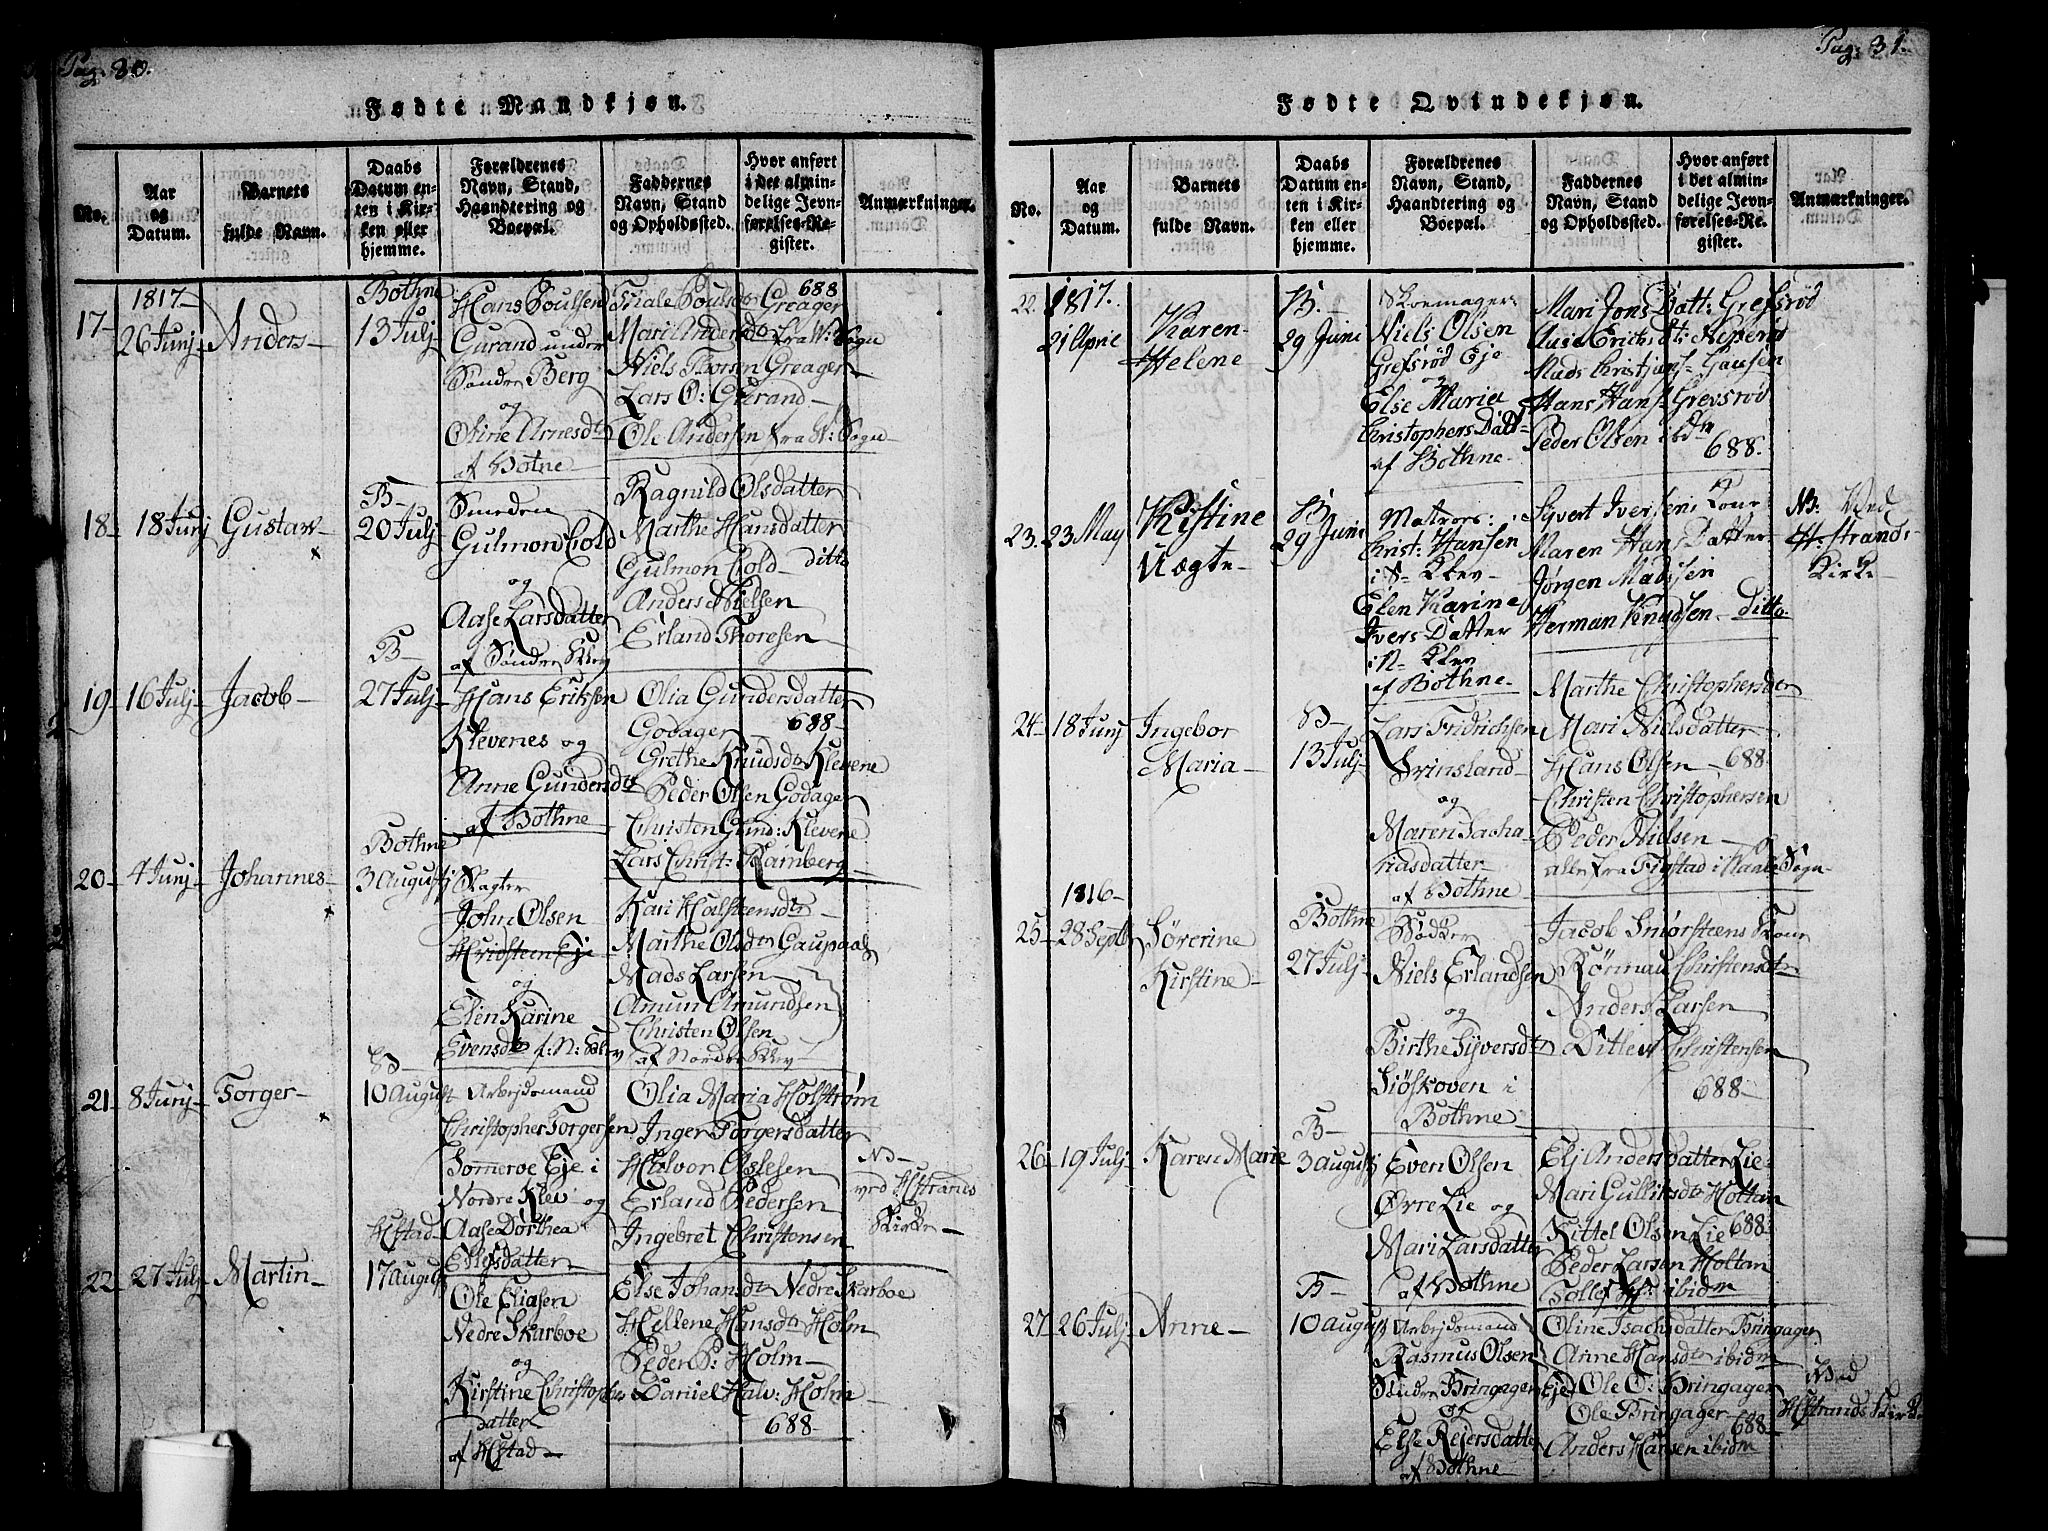 Pag: 30.
Fødte Mandkjøn.
No.
Aar og Datum.
Barnets fulde Navn.
Daabs Datum enten i Kirken eller hjemme.
Forældrenes Navn, Stand, Haandtering og Boepæl.
Faddernes Navn, Stand og Opholdssted.
Hvor anført i det almindelige Jevnførelses-Register.
Anmærkninger.
17-
1817-
26 Junj-
Anders-
Bothne
13 Julj-
Hans Poulsen
Gurand under
Søndre Berg
og
Oline Arnesdtr
af Botne
Mari Andersdtr fra W: Sogn
Niels Thorsen Greager
Lars O: Gurand-
Ole Andersen fra W: Sogn
688
18-
18 Junj
Gustav-
B-
20 Julj-
Smeden
Gulmon Cold
og
Aase Larsdatter
af Søndre Klev
Ragnild Olsdatter
Marthe Hansdatter
Gulmon Cold- ditto
Anders Nielsen
Erland Thoresen
19-
16 Julj-
Jacob-
B-
27 Julj-
Hans Eriksen
Klevenes og
Anne Gundersdtr
af Bothne
Olia Gundersdatter
Godager 688-
Grethe Knudsdtr Klevene
Peder Olsen Godager
Christen Gund: Klevene
Lars Christ: Ramberg-
20-
4 Junj-
Johannes-
Bothne
3 Augustj
John Olsen
Hvidsteen Eje
og
Elen Karine
Evensdtr f: N: Klev
Kari Halsteensdtr-
Marthe Olsdtr Gaupaas
Mads Larsen
Amun Amundsen
Christen Olsen
af Nordre Klev
21-
8 Junj-
Torger-
B-
10 August
Arbejdsmand
Christopher Torgersen
Sommeroe Eje i
Nordre Klev- og
Aase Dorthea
Ellefsdatter
Olia Maria Holstrøm
Inger Torgersdatter
Halvor Aslesen
Erland Pedersen
Ingebret Christensen
NB-
ved Hstrands
Kirke-
22-
27 Julj
Martin-
Hstad-
17 August
Ole Eliasen
Nedre Skarboe
og
Kirstine Christophers
datter
af Hstad-
Else Johansdtr Nedre Skarboe
Hellene Hansdtr Holm
Peder P: Holm-
Daniel Halv: Holm-
688-
Pag: 31.
Fødte Qvindekjøn.
No.
Aar og Datum.
Barnets fulde Navn.
Daabs Datum enten i Kirken eller hjemme.
Forældrenes Navn, Stand, Haandtering og Boepæl.
Faddernes Navn, Stand og Opholdssted.
Hvor anført i det almindelige Jevnførelses-Register.
Anmærkninger.
22.
1817.
21 April
Karen-
Helene
B.-
29 Juni
Skoemager
Niels Olsen
Grefsrød Eje
og
Else Maria
Christophers Datt-
af Bothne-
Mari Jons Datt: Grefsrød
Mads Christjans: Gausen
Hans Hans: Grevsrød
Peder Olsen ibdm
688.
23.
23 May
Kistine
Vægte-
B.
29 Juni
Matros:
Christ: Hansen
i S- Klev-
Elen Karine
Ivers Datter
i N- Klev
af Bothne-
Syvert Iversens Kone
Maren Hans Datter
Jørgen Madssen
Herman Knudsen- ditto.
NB: Ved
H:strands
Kirke
24-
18 Junj
Ingebor
Maria-
B-
13 Julj-
Lars Fridrichsen
Grinsland-
og
Maren Sacha-
riasdatter
af Bothne
Marthe Christophersdtr
Mari Nielsdatter-
Hans Olsen- 688-
Christen Christophersen
Peder Nielsen-
alle fra Figstad i Waale Sogn-
25-
1816-
28 Septb
Sørerine
Kirstine-
Bothne
27 Julj-
Bødker
Niels Erlandsen
og
Birthe Syversdtr
Siøskoven i
Bothne-
Jacob Smørsteens Kone
Rønnau Christensdtr
Anders Larsen
Ditlev Christensen
688-
26-
19 Julj-
Karen Marie
B-
3 Augustj
Even Olsen
Øvre Lie og
Mari Larsdatter
af Bothne
Elj Andersdatter Lie-
Mari Gulliksdtr Holtan
Kittel Olsen Lie 688-
Peder Larsen Holtan
Tollef H: ibidm
27-
26 Julj-
Anne-
B-
10 August
Arbejdsmand
Rasmus Olsen
Søndre Bringager Eje
og
Else Rejersdatter
af Bothne
Oline Isachsdatter Bringager
Anne Hansdtr ibidm
Ole O: Bringager
Ole Bringager-
688-
Anders Hansen ibidm
Hstrands Kirke